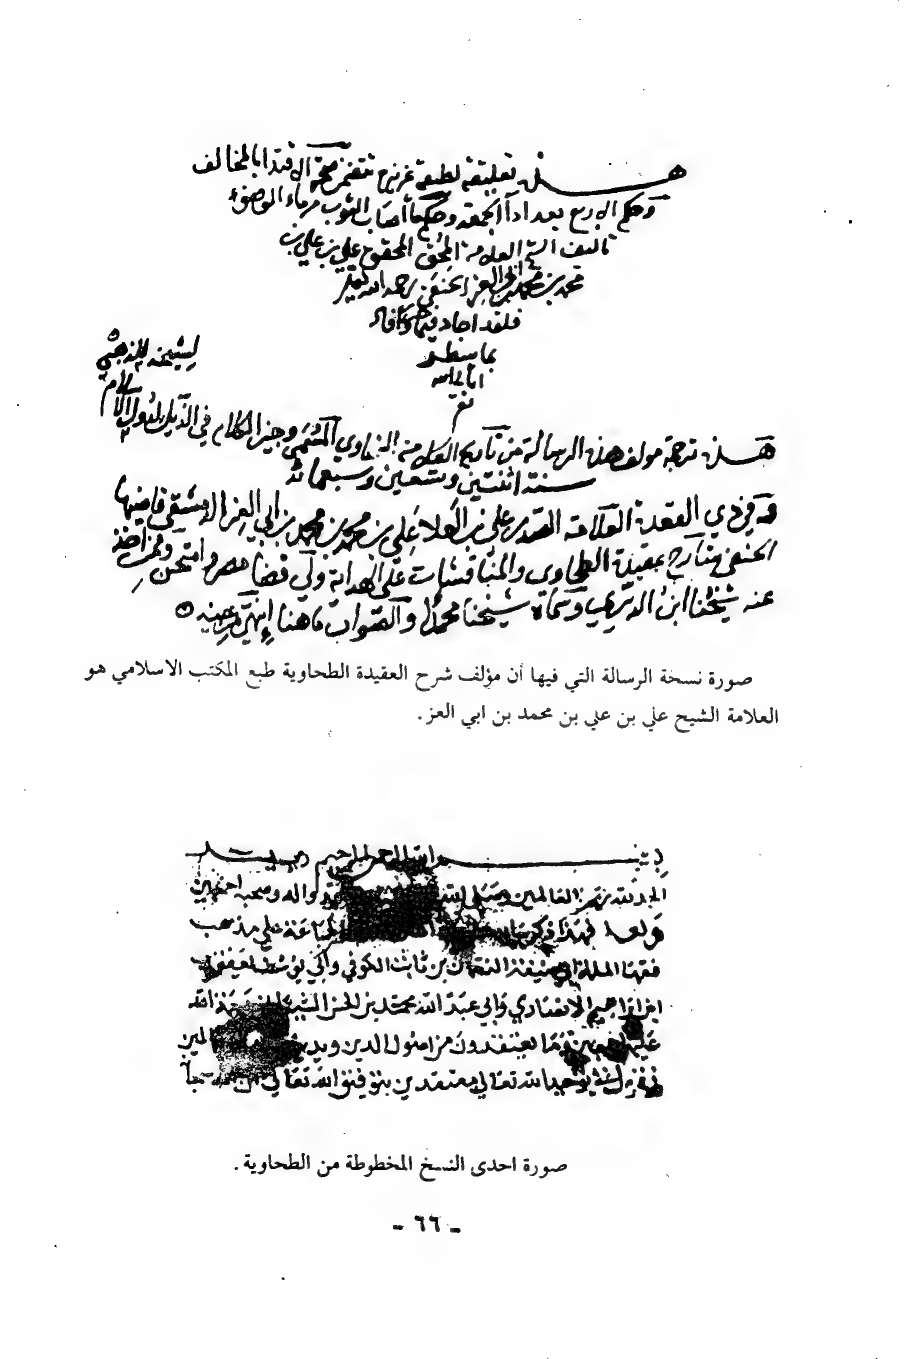 هذه تعليقة لطيفة عزيزة تتضمن صحة الاقتدا بالمخالف
وحكم الاربع بعد اداء الجمعة وحكم ما اصاب الثوب من ماء الوضوء
تاليف الشيخ العلامة المحقق علي بن علي بن
محمد بن محمد بن ابي العز الحنفي رحمه الله تعالى
فلقد اجاد فيما وافاد
بما سطر
لشيخه الذهبي
هذه ترجمة مولف هذه الرسالة من تاريخ العلامة السخاوي المسمى وجيز الكلام في الذيل لدول الاسلام
سنة اثنتين وتسعين وسبعمائة
في ذي القعدة العلامة الصدر علي بن العلاء علي بن محمد بن محمد بن ابي العز الدمشقي قاضيها
الحنفي شارح عقيدة الطحاوي والمناقشات على الهداية ولي قضا مصر وامتحن وممن اخذ
عنه شيخنا ابن الديري وسماه شيخنا محمدا والصواب ما هنا انتهى بعينه
صورة نسخة الرسالة التي فيها أن مؤلف شرح العقيدة الطحاوية طبع المكتب الاسلامي هو
العلامة الشيح علي بن علي بن محمد بن ابي العز.
بسم الله الرحمن الرحيم
الحمد لله رب العالمين وصلى الله واله وصحبه اجمعين
وبعد فهذا ذكر الجماعة على مذهب
فقها الملة ابي حنيفة النعمان بن ثابت الكوفي وابي يوسف يعقوب
ابن ابراهيم الانصاري وابي عبد الله محمد بن الحسن الشيباني الله
عليهم وما يعتقدون من اصول الدين العالمين
نقول في توحيد الله تعالى معتقدين بتوفيق الله تعالى
صورة احدى النسخ المخطوطة من الطحاوية .
- ٦٦ -